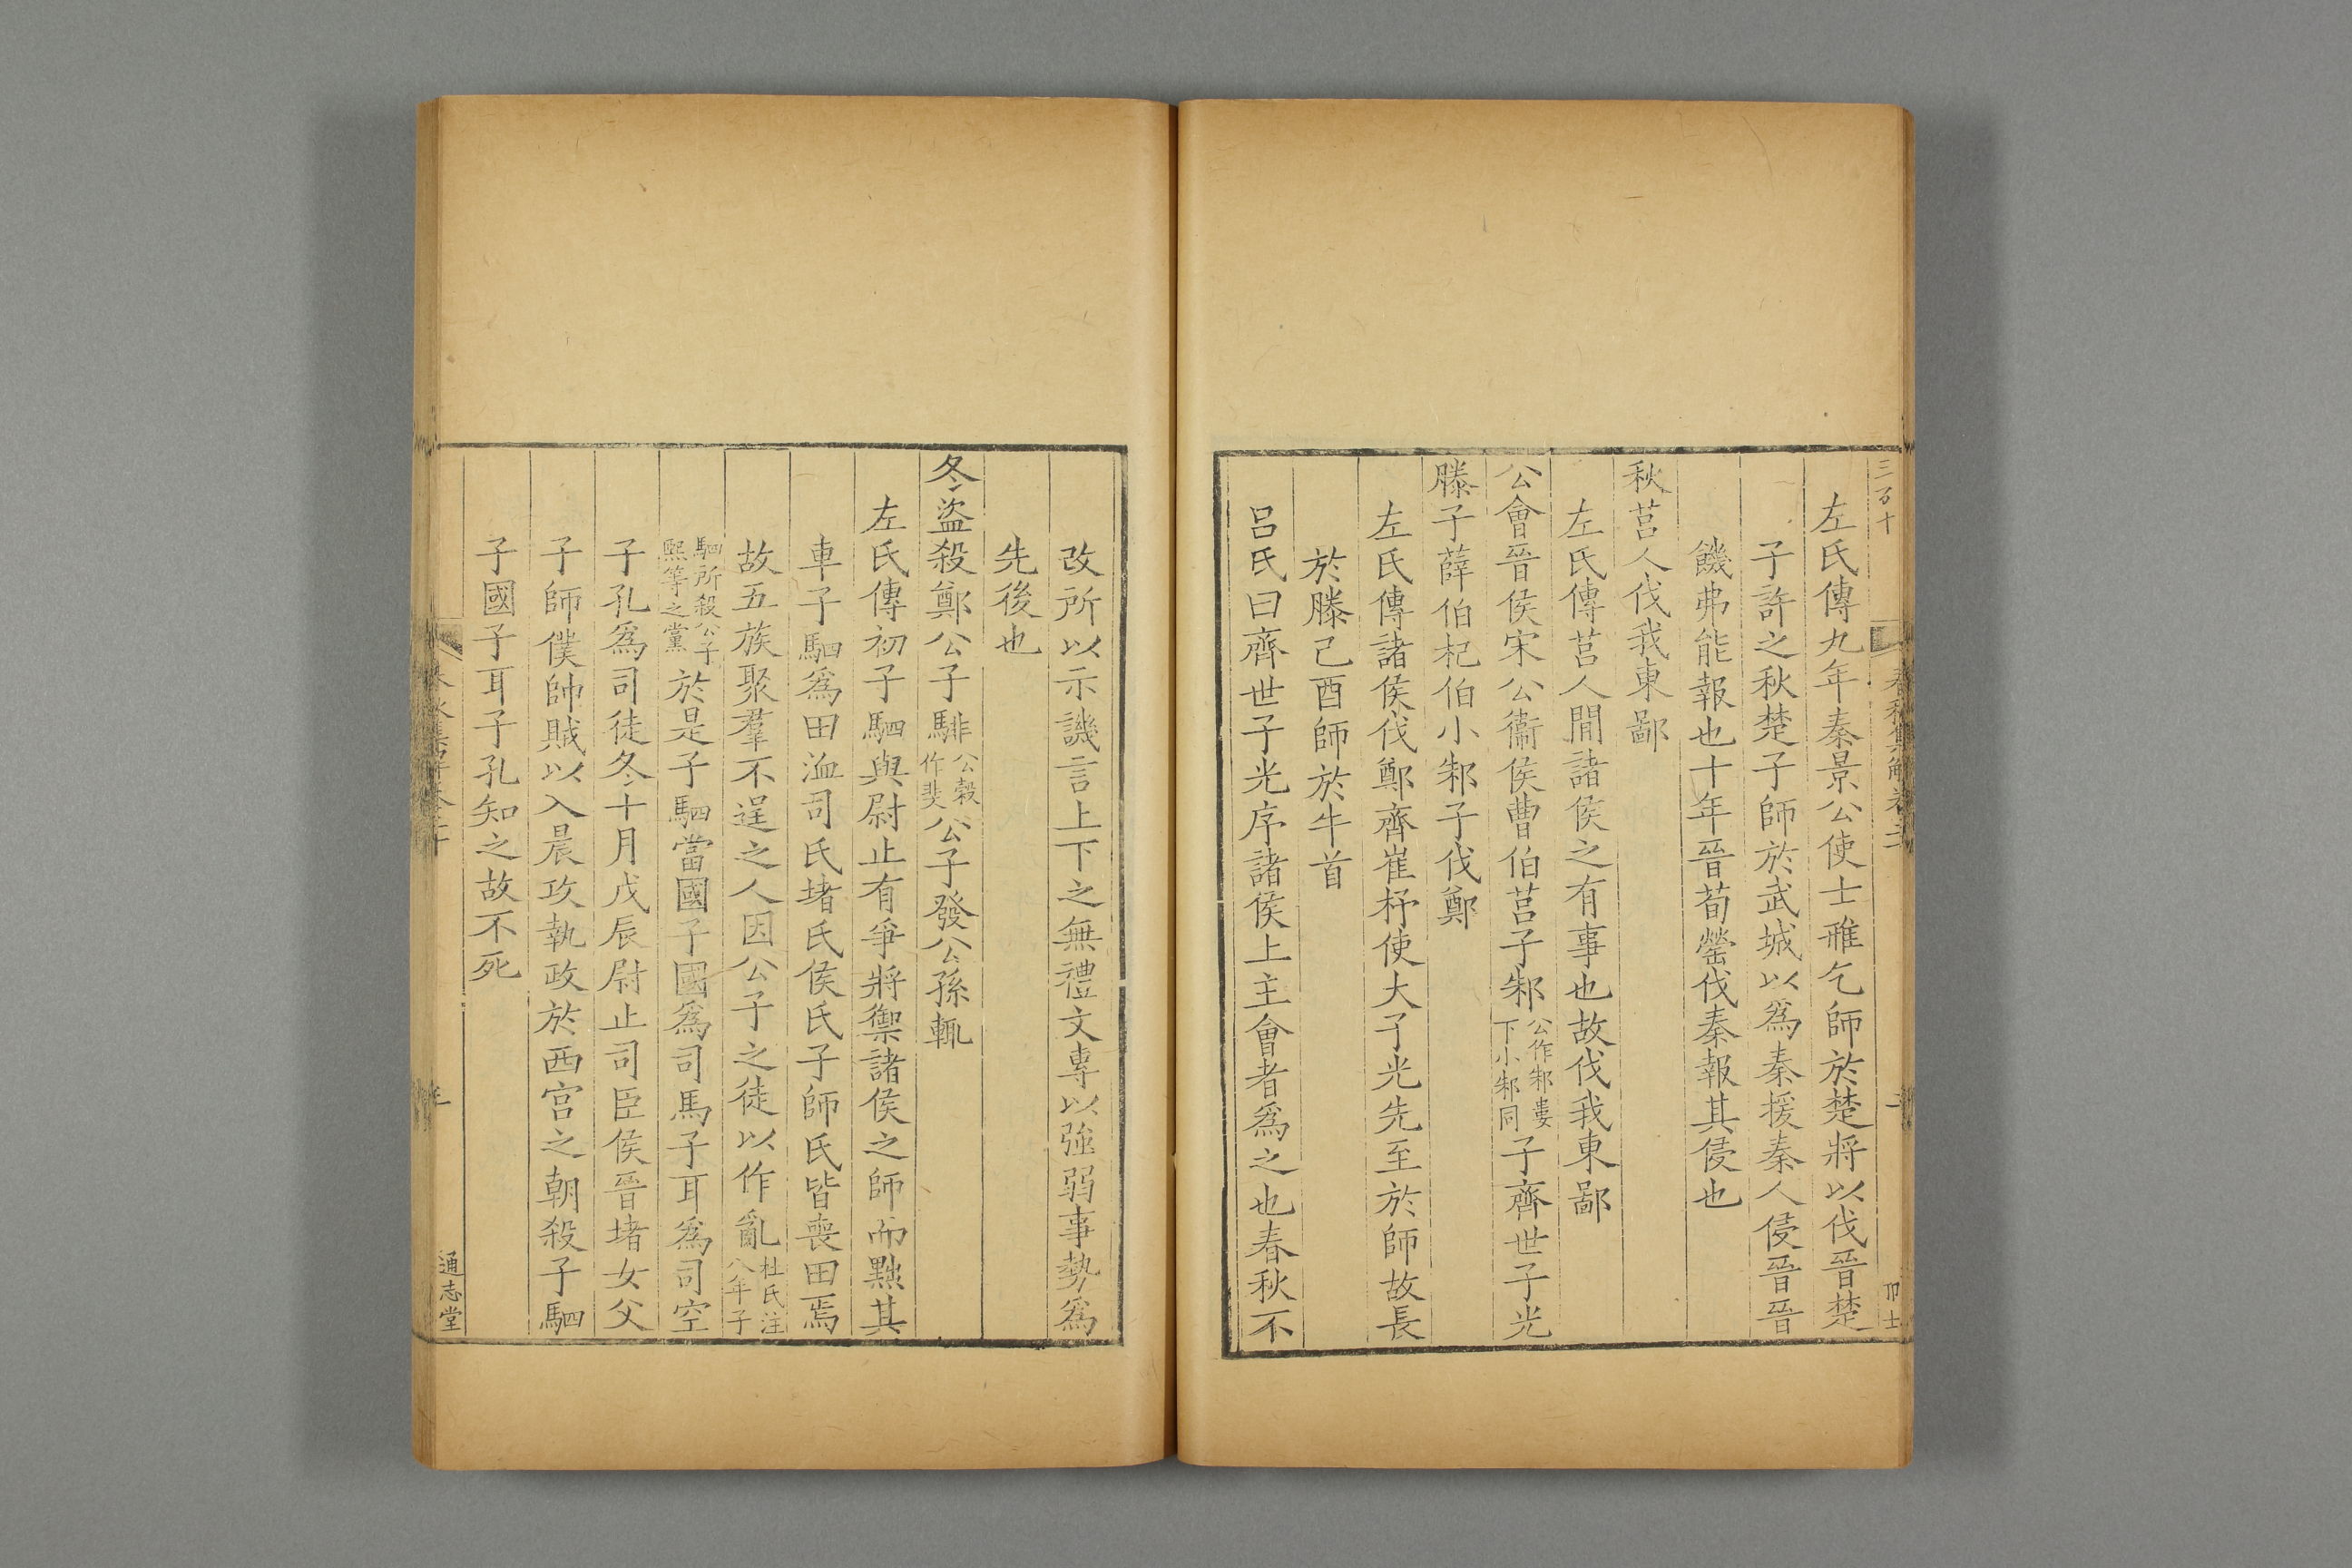 三百十
左氏傳九年秦景公使士雃乞師於楚將以伐晉楚
子許之秋楚子師於武城以爲秦援秦人侵晉晉
饑弗能報也十年晉荀罃伐秦報其侵也
秋莒人伐我東鄙
左氏傳莒人間諸侯之有事也故伐我東鄙
公會晉侯宋公衞侯曹伯莒子邾公作邾婁下小邾同子齊世子光
滕子薛伯杞伯小邾子伐鄭
左氏傳諸侯伐鄭齊崔杼使大子光先至於師故長
於滕己酉師於牛首
呂氏曰齊世子光序諸侯上主會者爲之也春秋不
改所以示譏言上下之無禮文專以強弱事勢爲
先後也
冬盜殺鄭公子騑公穀作斐公子發公孫輒
左氏傳初子駟與尉止有爭將禦諸侯之師而黜其
車子駟爲田洫司氏堵氏侯氏子師氏皆喪田焉
故五族聚羣不逞之人因公子之徒以作亂杜氏注八年子
駟所殺公子熙等之黨於是子駟當國子國爲司馬子耳爲司空
子孔爲司徒冬十月戊辰尉止司臣侯晉堵女父
子師僕帥賊以入晨攻執政於西宮之朝殺子駟
子國子耳子孔知之故不死
通志堂